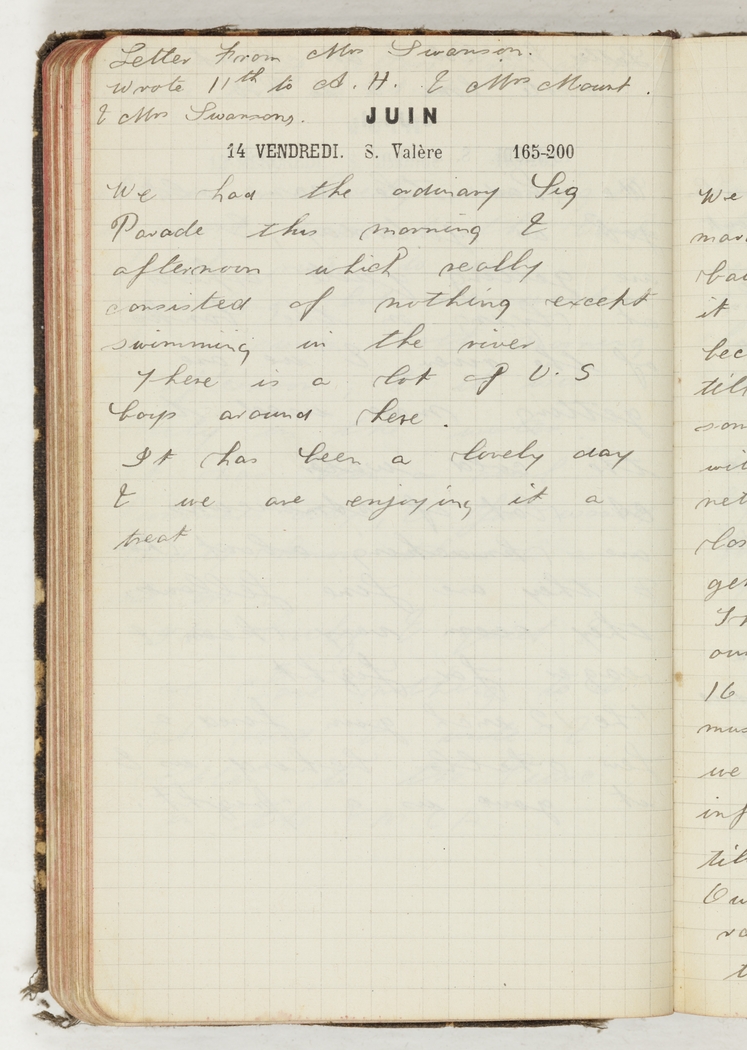 Letter From Mrs Swanson.
Wrote 11th to A. H. & Mrs Mount.
& Mrs Swanson.
JUIN
14 VENDREDI. S. Valère 165-200
We had the ordinary Sig
Parade this morning &
afternoon which really
consisted of nothing except
swimming in the river
There is a lot of U.S
boys around here.
It has been a lovely day
& we are enjoying it a
treat
We
it
16
we